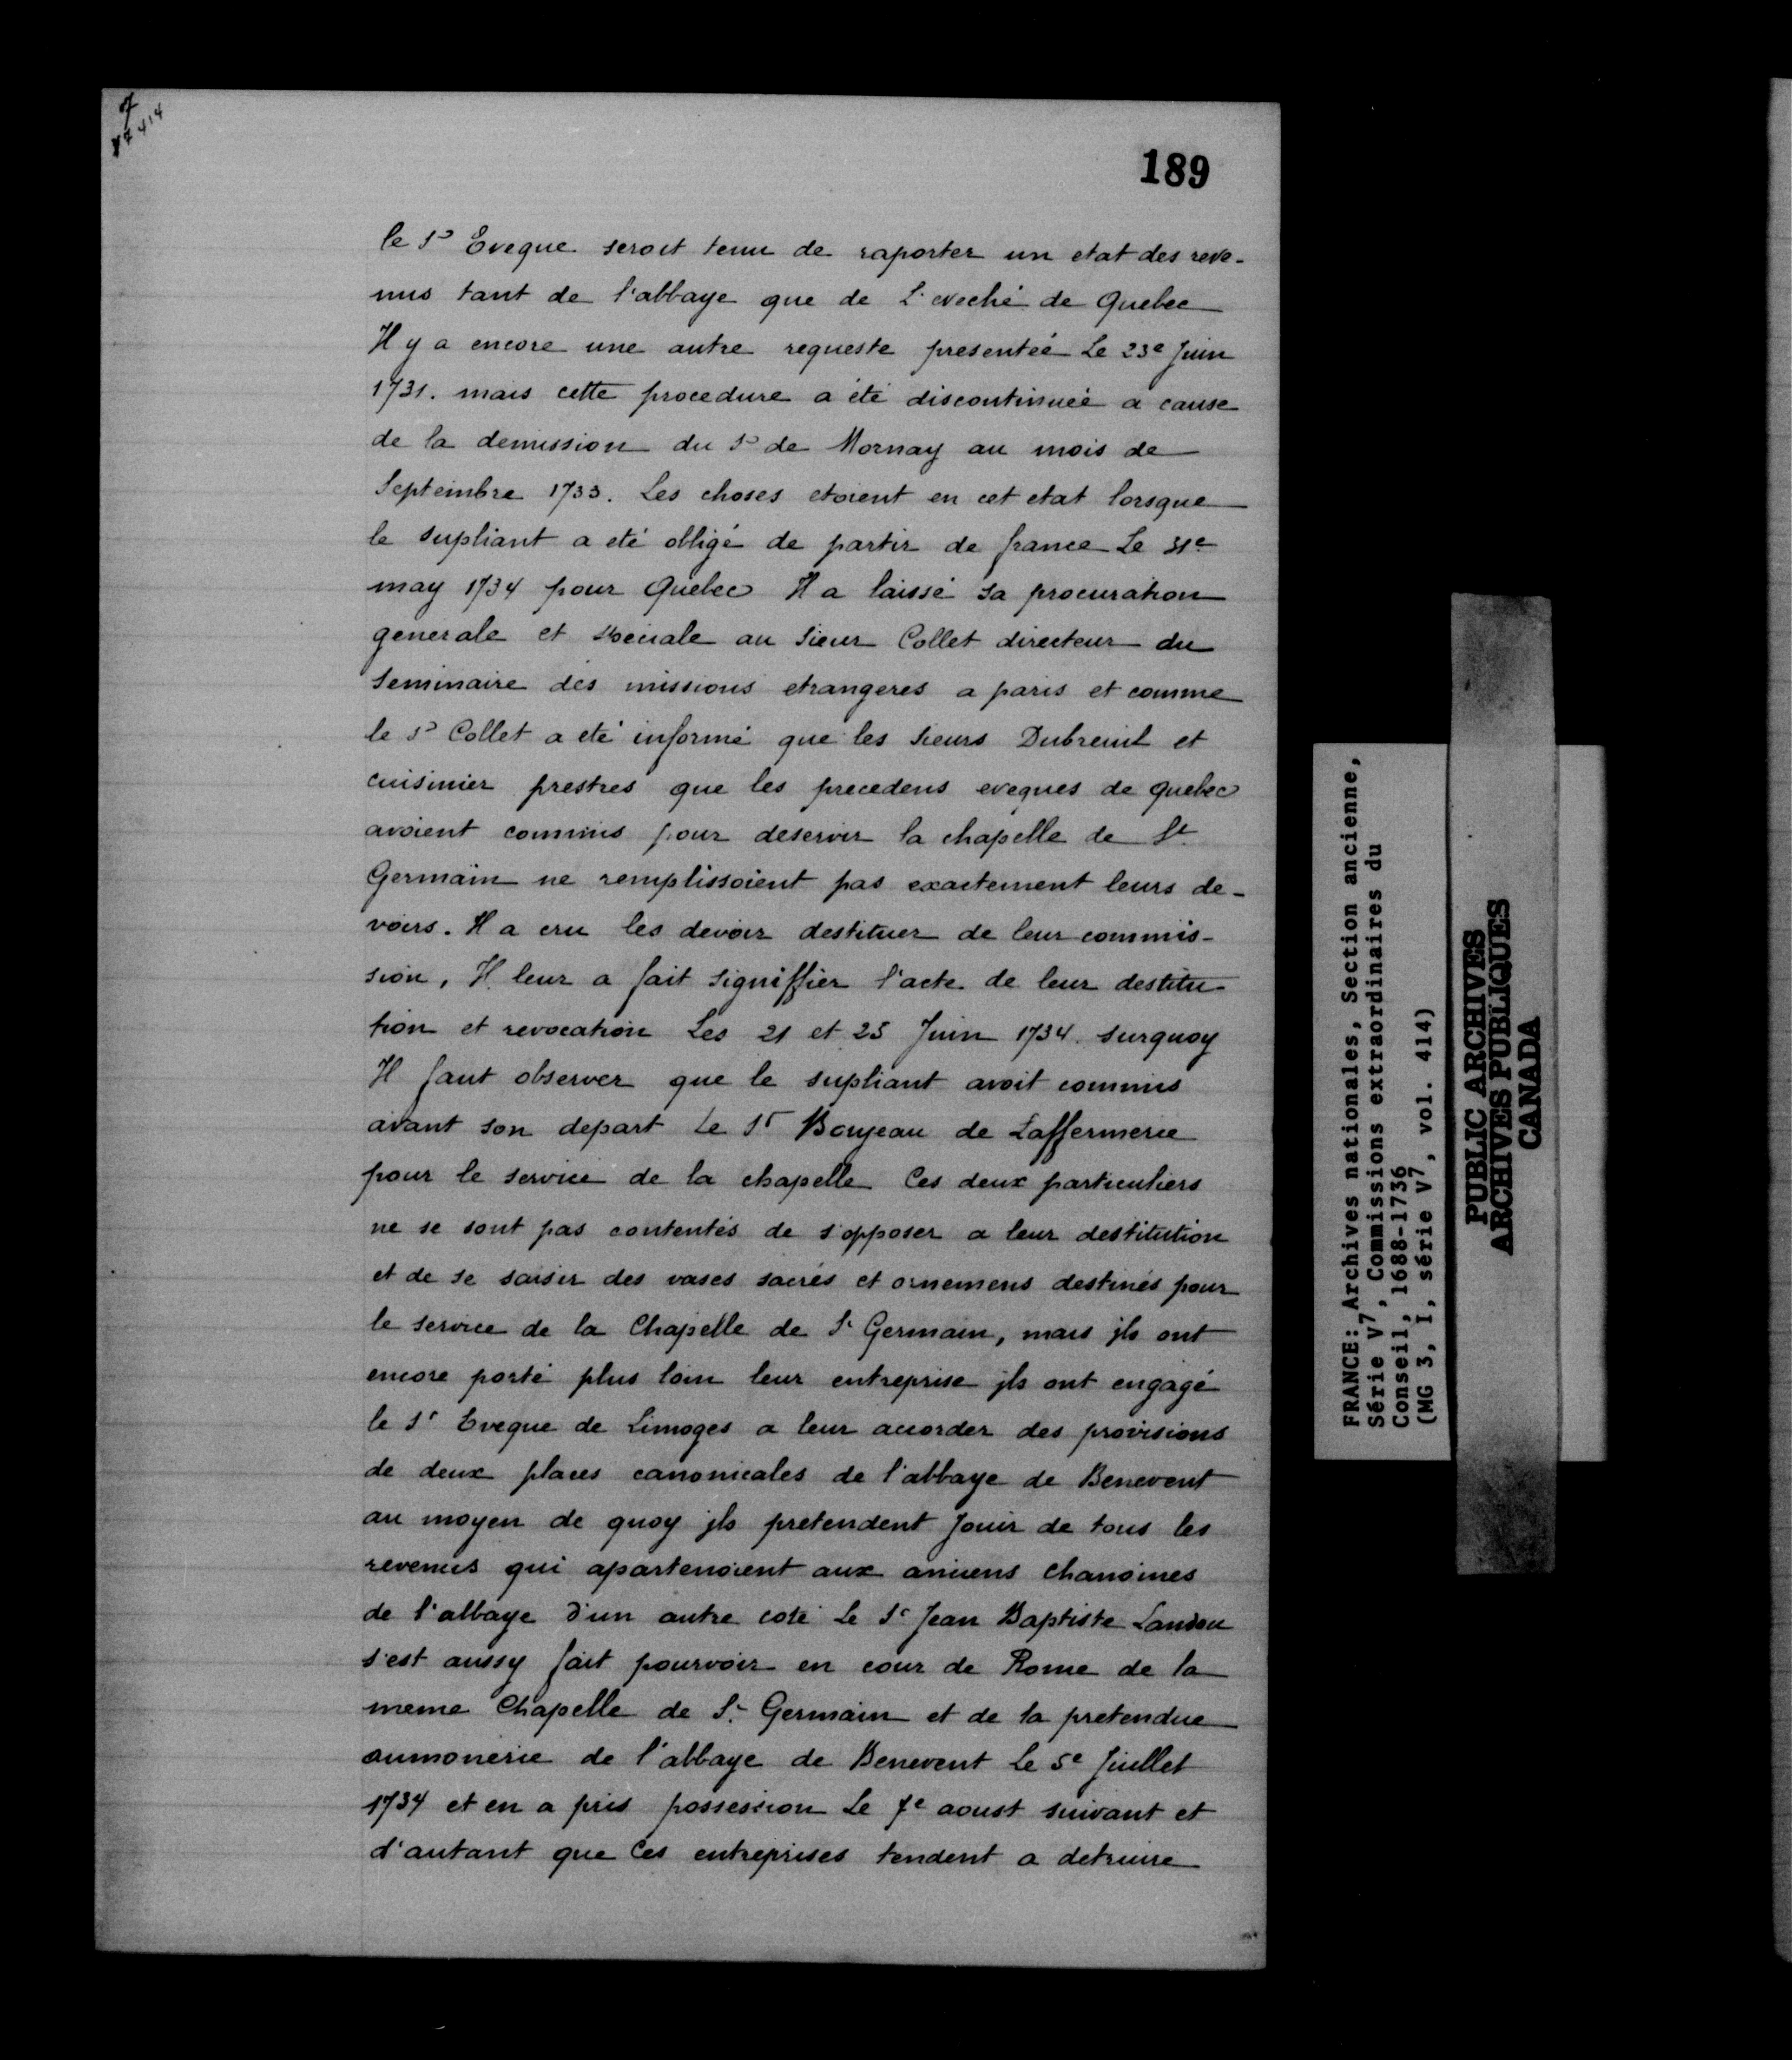 V7 414
189
le Sr Eveque seroit tenu de raporter un etat des reve-
nus tant de l'abbaye que de L'eveché de Quebec
Il y a encore une autre requeste presentée Le 23e Juin
1731. mais cette procedure a été discontinuée a cause
de la demission du Sr de Mornay au mois de
Septembre 1733. Les choses etoient en cet etat lorsque
le supliant a eté obligé de partir de france Le 31e
may 1734 pour Quebec Il a laissé sa procuration
generale et speciale au Sieur Collet directeur du
Seminaire des missions etrangeres a paris et comme
le Sr Collet a eté informé que les Sieurs Dubreuil et
cuisinier prestres que les precedens eveques de quebec
avoient commis pour deservir la chapelle de St
Germain ne remplissoient pas exactement leurs de-
voirs. Il a cru les devoir destituer de leur commis-
sion, Il leur a fait signiffier l'acte de leur destitu-
tion et revocation Les 21 et 25 Juin 1734. surquoy
Il faut observer que le supliant avoit commis
avant son depart Le Sr Boujeau de Laffermerie
pour le service de la chapelle Ces deux particuliers
ne se sont pas contentés de s'opposer a leur destitution
et de se saisir des vases sacrés et ornemens destinés pour
le service de la Chapelle de St Germain, mais jls ont
encore porté plus loin leur entreprise jls ont engagé
le Sr Eveque de Limoges a leur accorder des provisions
de deux places canonicales de l'abbaye de Benevent
au moyen de quoy jls pretendent Jouir de tous les
revenus qui apartenoient aux anciens chanoines
de l'abbaye d'un autre coté Le Sr Jean Baptiste Landou
s'est aussy fait pourvoir en cour de Rome de la
meme Chapelle de St Germain et de la pretendue
aumonerie de l'abbaye de Benevent Le 5e Juillet
1734 et en a pris possession Le 7e aoust suivant et
d'autant que Ces entreprises tendent a detruire
FRANCE: Archives nationales, Section ancienne,
Série V7, Commissions extraordinaires du
Conseil, 1688-1736
(MG 3, I, série V7, vol. 414)
PUBLIC ARCHIVES
ARCHIVES PUBLIQUES
CANADA